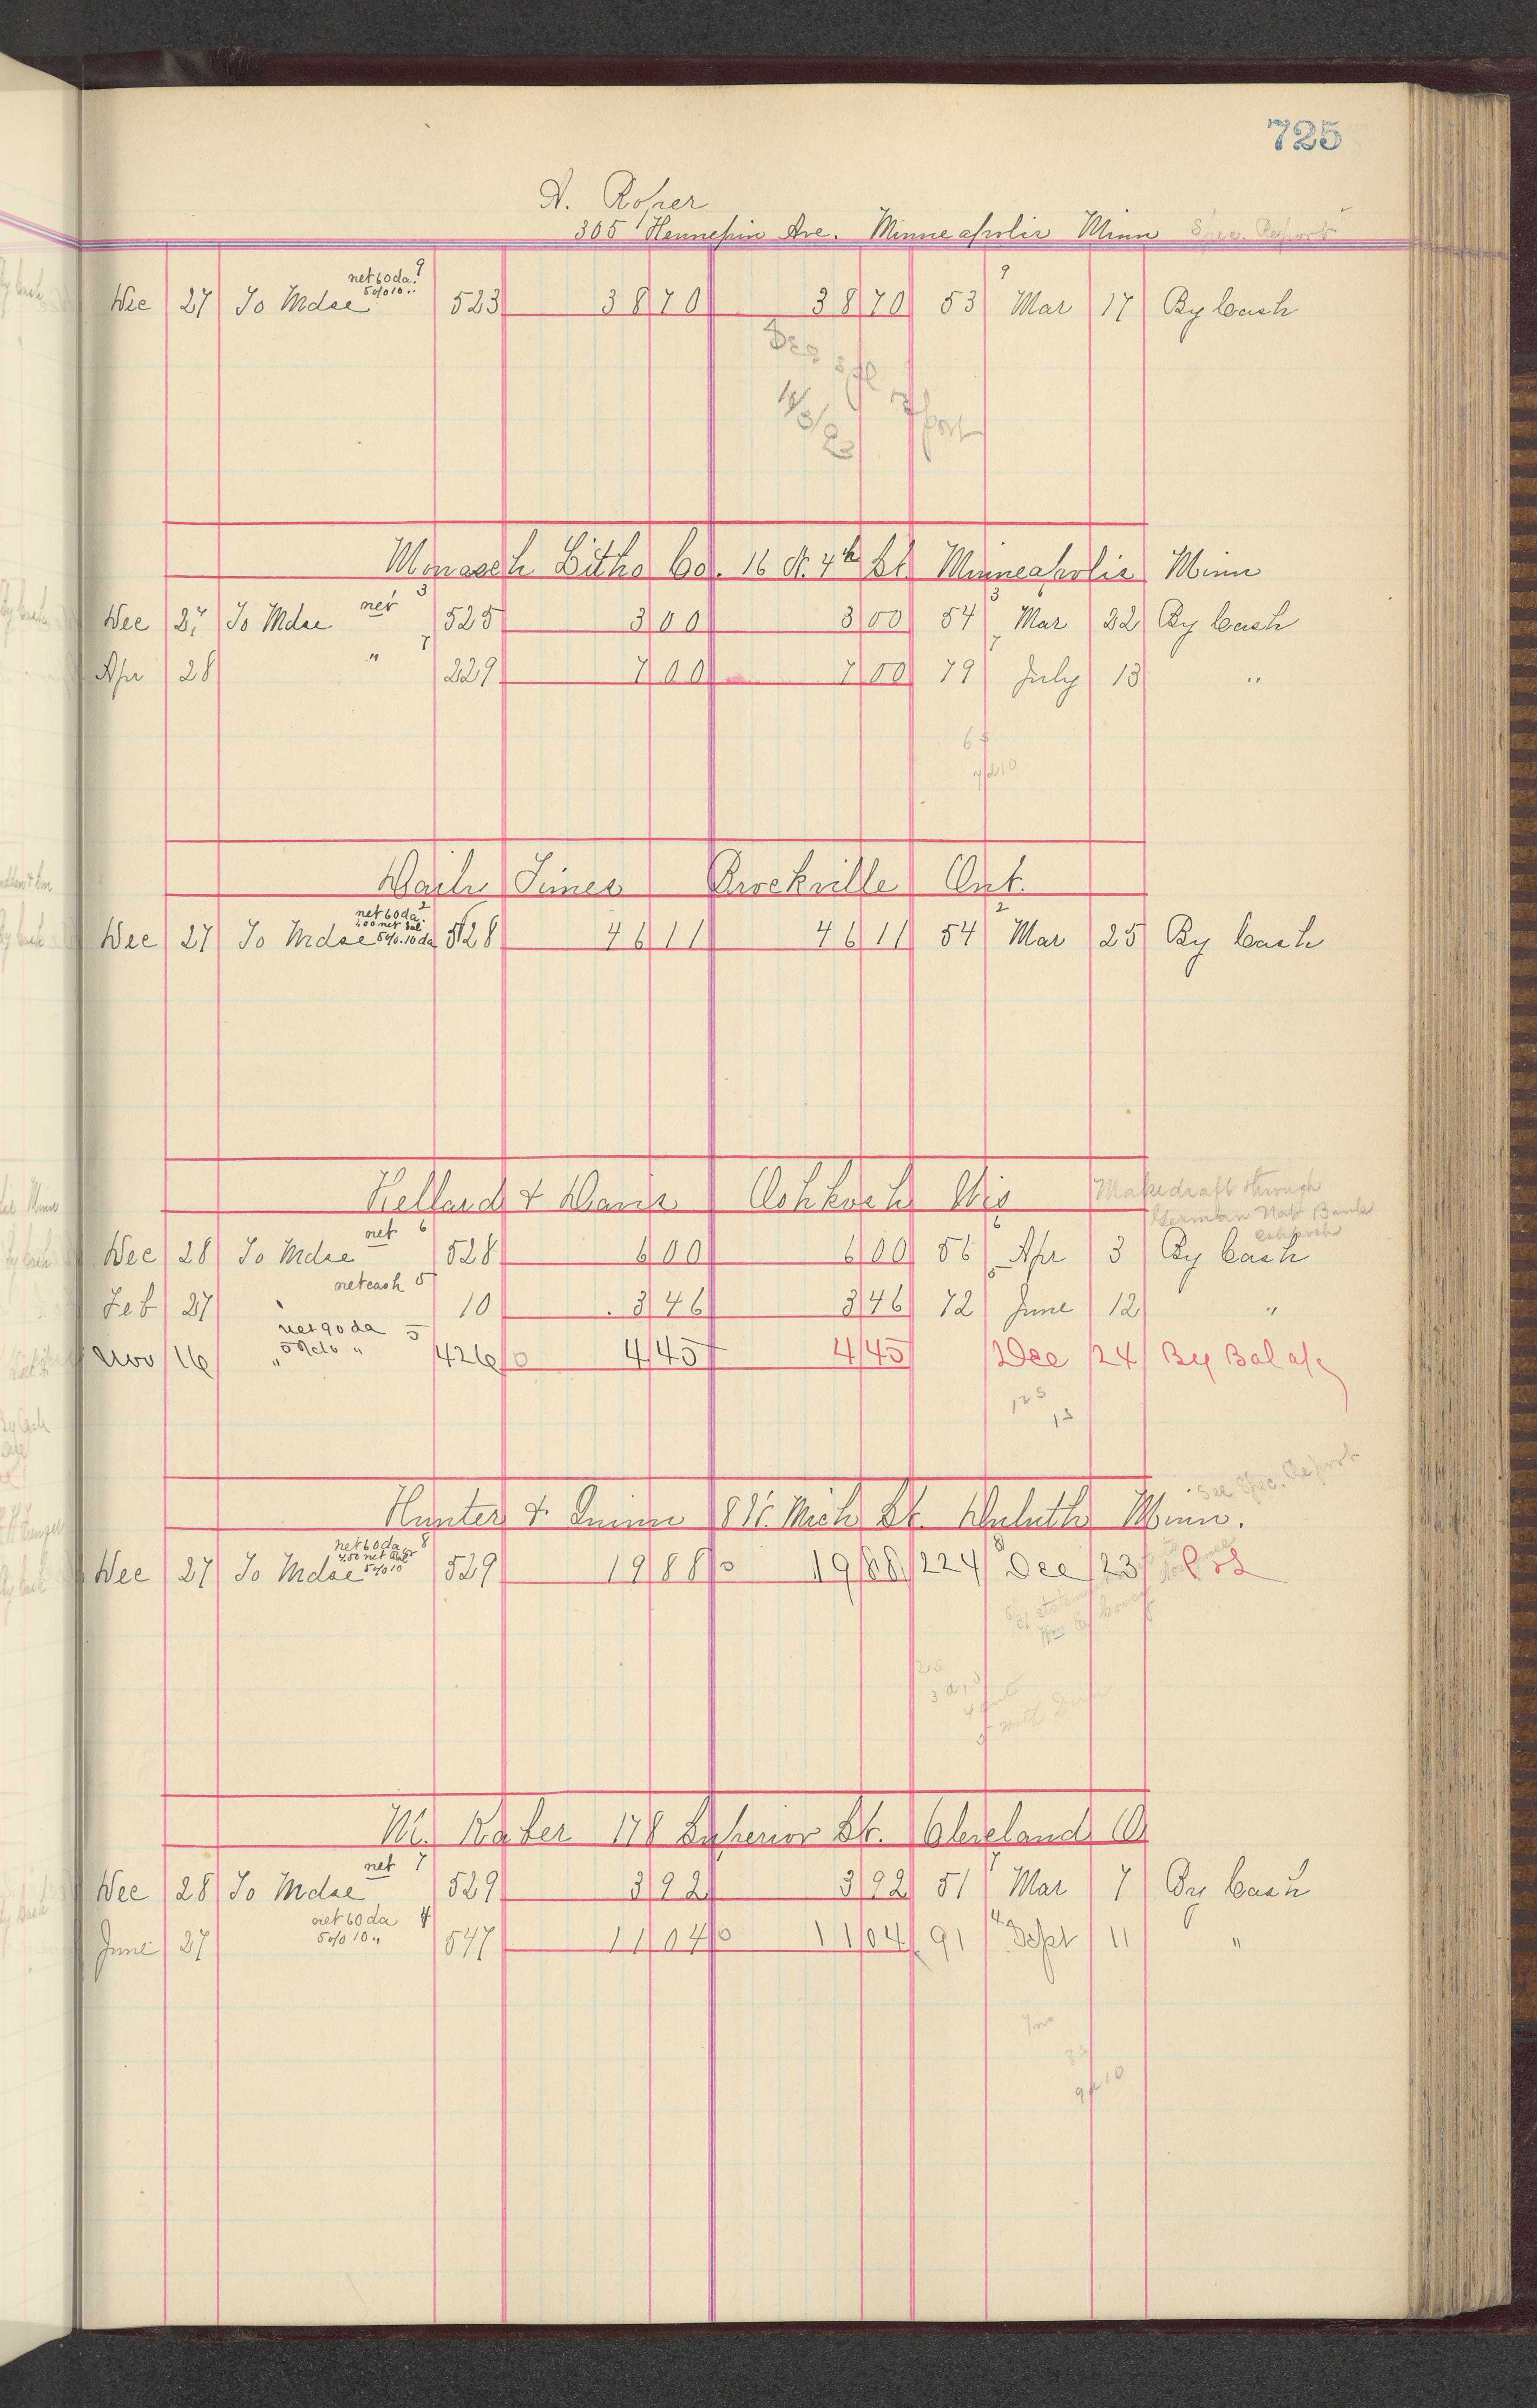 725
A. Roper
305 Hennepin Ave. Minneapolis Minn Spec. Report
Dec 27 To Mdse net 60 da. 5%10 " 9 523 38 70 38 70 53 9 Mar 17 By Cash
See spl report
Monasch Litho Co. 16 N. 4th St. Minneapolis Minn
Dec 27 To Mdse net 3 525 3 00 3 00 54 3 Mar 22 By Cash
Apr 28 " 7 229 7 00 7 00 79 7 July 13 "
Daily Times Brockville Ont.
Dec 27 To Mdse net 60 da. 2 5% 10 da 528 46 11 46 11 54 2 Mar 25 By Cash
Kellard & Davis Oshkosh Wis Make draft through
German Nat Bank
Dec 28 To Mdse net 6 528 6 00 6 00 56 6 Apr 3 By Cash
Feb 27 " net cash 5 10 3 46 3 46 72 5 June 12 "
Nov 16 " net 90 da 5 426 0 4 45 4 45 Dec 24 By Bal a/c
See Spec. Report
Hunter & Quinn 8 W. Mich St. Duluth Minn.
Dec 27 To Mdse net 60 da 8 5%10 529 19 88 0 19 88 224 8 Dec 23 P & L
M. Kaber 178 Superior St. Cleveland O
Dec 28 To Mdse net 7 529 3 92 3 92 51 7 Mar 7 By Cash
June 27 net 60 da 4 5%10 " 547 11 04 0 11 04 91 4 Sept 11 "